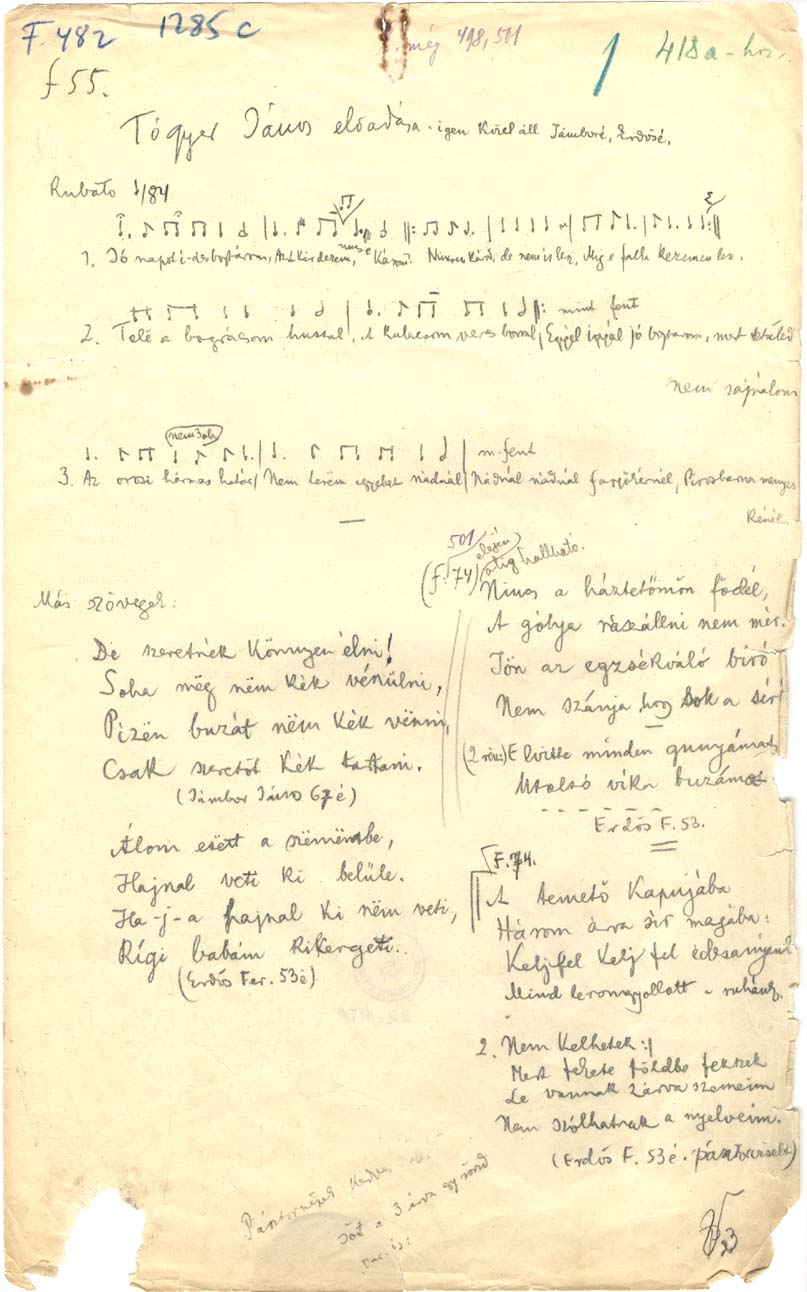 F. 482 1285 c még 498, 501 418a-hoz
f 55.
Tógyer János előadása. igen közel áll Jámboré, Erdősé.
Rubato /84
1. Jó napot i-des bojtárom, Aztat kérdezem, nincs e Károm? Nincsen károd, de nem is lesz, Míg e falka kezemen lesz.
mind fent
2. Tele a bográcsom hussal, A kulacsom veres borral, Egyél igyál jó bojtárom, mert tetüled
nem sajnálom
nem 3ola
m. fent
3. Az orosi hármas határ/ Nem terëm egyebet nádnál/ Nádnál nádnál Pirosbarna menyecs
Kénél
501
elején
alig hallható.
(f. 74)
Más szövegek:
De szeretnék könnyen élni!
Soha mëg nëm kék vénülni,
Pízën buzát nëm kék vënni,
Csak szeretőt kék tartani.
(Jámbor János 67 é)
Álom esëtt a szëmëmbe,
Hajnal veti ki belüle.
Ha-j-a hajnal ki nëm veti,
Rígi babám kikergeti.
(Erdős Fer. 53é)
Nincs a háztetőmön födél,
A gólya rászállni nem mér.
Jön az egzsékváló bíró
Nem szánja, hogy sok a síró
(2 rész:) Elvitte minden gunyámat
Utolsó víka buzámat
Erdős F. 53.
F. 74.
A temető kapujába
Három árva sír magába:
Kelj fel kelj fel édesanyánk
Mind lerongyollott a ruhánk.
2. Nem kelhetek :/
Mert fekete földbe fekszek
Le vannak zárva szemeim
Nem szólhatnak a nyelveim.
(Erdős F. 53é. pásztorviselt)
Pásztornépek kedves
Sőt a 3 árva
var. is!
23